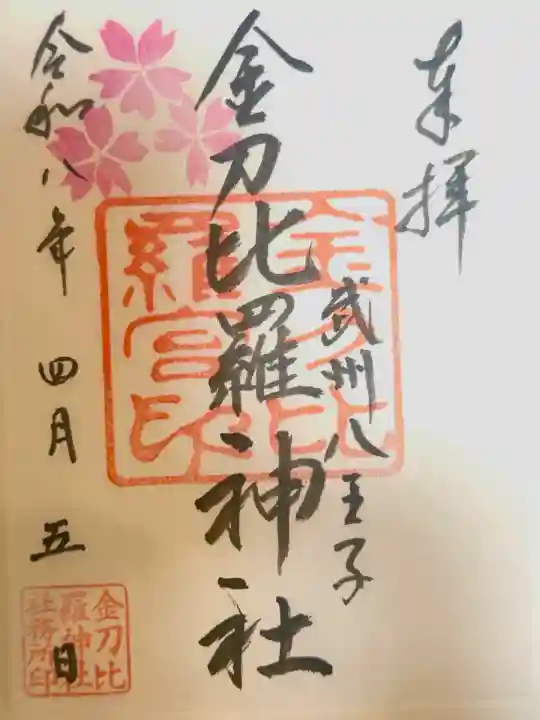 奉拝
武州八王子
金刀比羅神社
令和八年 四月 五日
金刀比
羅神社
社務所印
金刀比
羅宮印